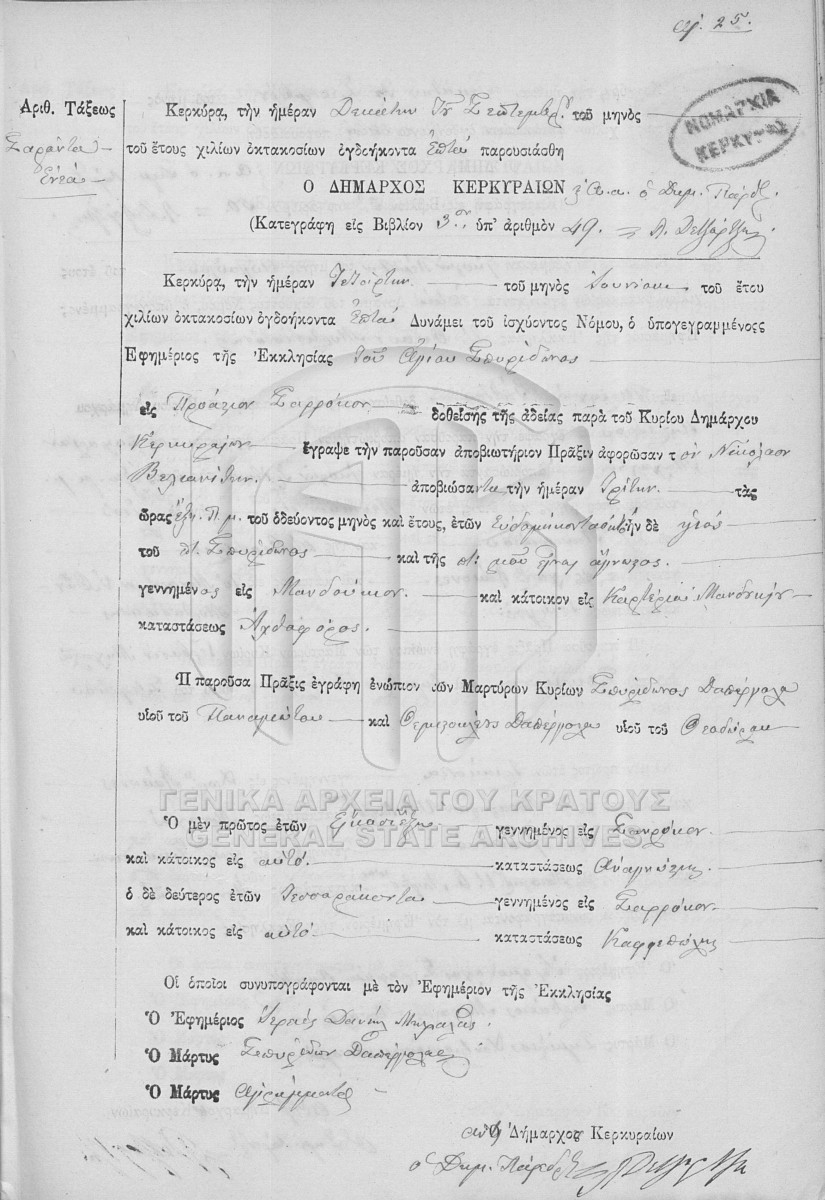 αρ. 25.
ΝΟΜΑΡΧΙΑ
ΚΕΡΚΥΡΑΣ
Ἀριθ. Τάξεως
Σαράντα
Ἐννέα
Κερκύρᾳ, τὴν ἡμέραν Δεκάτην Σεπτεμβρ. τοῦ μηνὸς
τοῦ ἔτους χιλίων ὀκτακοσίων ὀγδοήκοντα ἑπτὰ παρουσιάσθη
Ὁ ΔΗΜΑΡΧΟΣ ΚΕΡΚΥΡΑΙΩΝ ὁ Δημ. Πάρεδ.
(Κατεγράφη εἰς Βιβλίον 3ον ὑπ' ἀριθμὸν 49.
Κερκύρᾳ, τὴν ἡμέραν Τετάρτην τοῦ μηνὸς Ἰουνίου τοῦ ἔτου
χιλίων ὀκτακοσίων ὀγδοήκοντα ἑπτὰ Δυνάμει τοῦ ἰσχύοντος Νόμου, ὁ ὑπογεγραμμένοςς
Ἐφημέριος τῆς Ἐκκλησίας τοῦ Ἁγίου Σπυρίδωνος
εἰς Προάστιον Σαρρόκον δοθείσης τῆς ἀδείας παρὰ τοῦ Κυρίου Δημάρχου
Κερκυραίων ἔγραψε τὴν παροῦσαν ἀποβιωτήριον Πρᾶξιν ἀφορῶσαν τ ὸν Νικόλαον
Βελιανίτην ἀποβιώσαντα τὴν ἡμέραν Τρίτην τὰς
ὥρας ἕξη Π.μ. τοῦ ὁδεύοντος μηνὸς καὶ ἔτους, ἐτῶν δὲ υἱὸς
τοῦ π. Σπυρίδωνος καὶ τῆς
γεννημένος εἰς Μανδούκιον. καὶ κάτοικον εἰς
καταστάσεως Ἀχθοφόρος.
Ἡ παροῦσα Πρᾶξις ἐγράφη ἐνώπιον τῶν Μαρτύρων Κυρίων Σπυρίδωνος Δαπέργολα
υἱοῦ τοῦ Παναγιώτου καὶ Θεμιστοκλέους Δαπέργολα υἱοῦ τοῦ Θεοδώρου
ΓΕΝΙΚΑ ΑΡΧΕΙΑ ΤΟΥ ΚΡΑΤΟΥΣ
GENERAL STATE ARCHIVES
Ὁ μὲν πρῶτος ἐτῶν εἴκοσι ἕξη γεννημένος εἰς Σαρρόκον
καὶ κάτοικος εἰς αὐτό. καταστάσεως Ἀναγνώστης
ὁ δὲ δεύτερος ἐτῶν Τεσσαράκοντα γεννημένος εἰς Σαρρόκον
καὶ κάτοικος εἰς αὐτό καταστάσεως Καφφεπώλης
Οἱ ὁποῖοι συνυπογράφονται μὲ τὸν Ἐφημέριον τῆς Ἐκκλησίας
Ὁ Ἐφημέριος Ἱερεὺς Δανιὴλ
Ὁ Μάρτυς Σπυρίδων Δαπέργολας
Ὁ Μάρτυς Ἀγράμματος
Δήμαρχος Κερκυραίων
ὁ Δημ. Πάρεδρ.